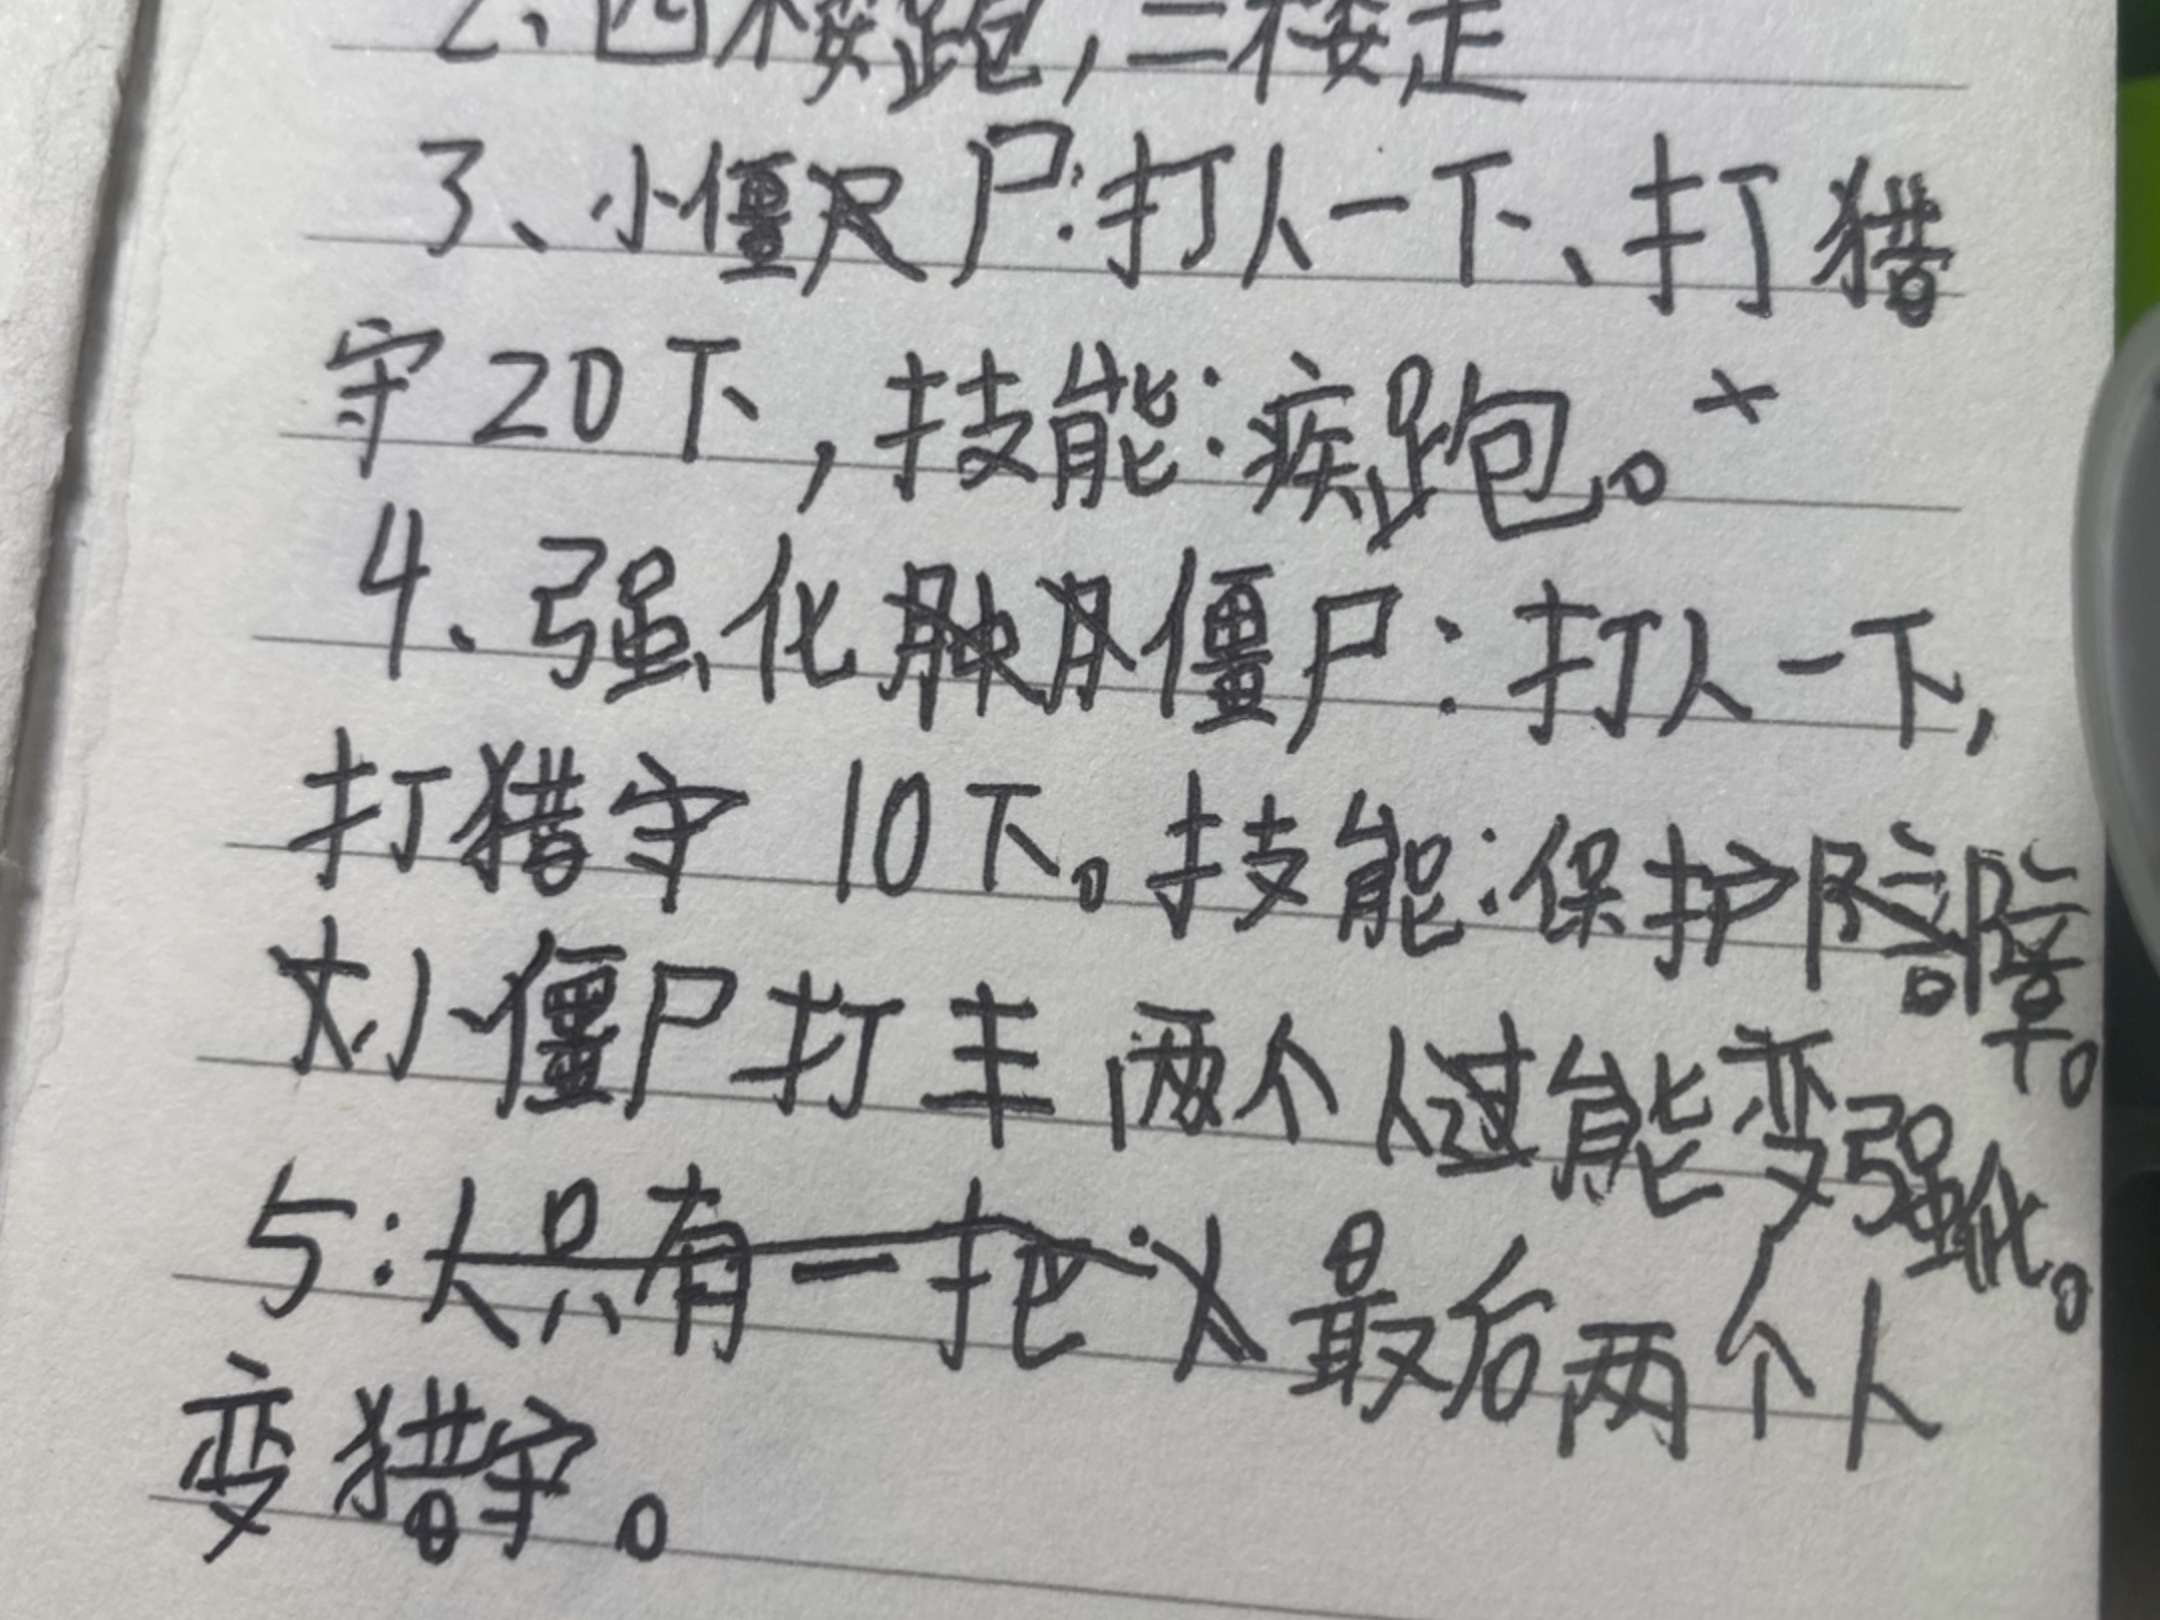 2、四楼跑,三楼走
3、小僵尸:打人一下、打猎
守20下,技能:疾跑。
4、强化僵尸:打人一下,
打猎守 10下。技能:保护障。
小僵尸打丰两个人过能变强化。
5:人只有一把 最后两个人
变猎守。